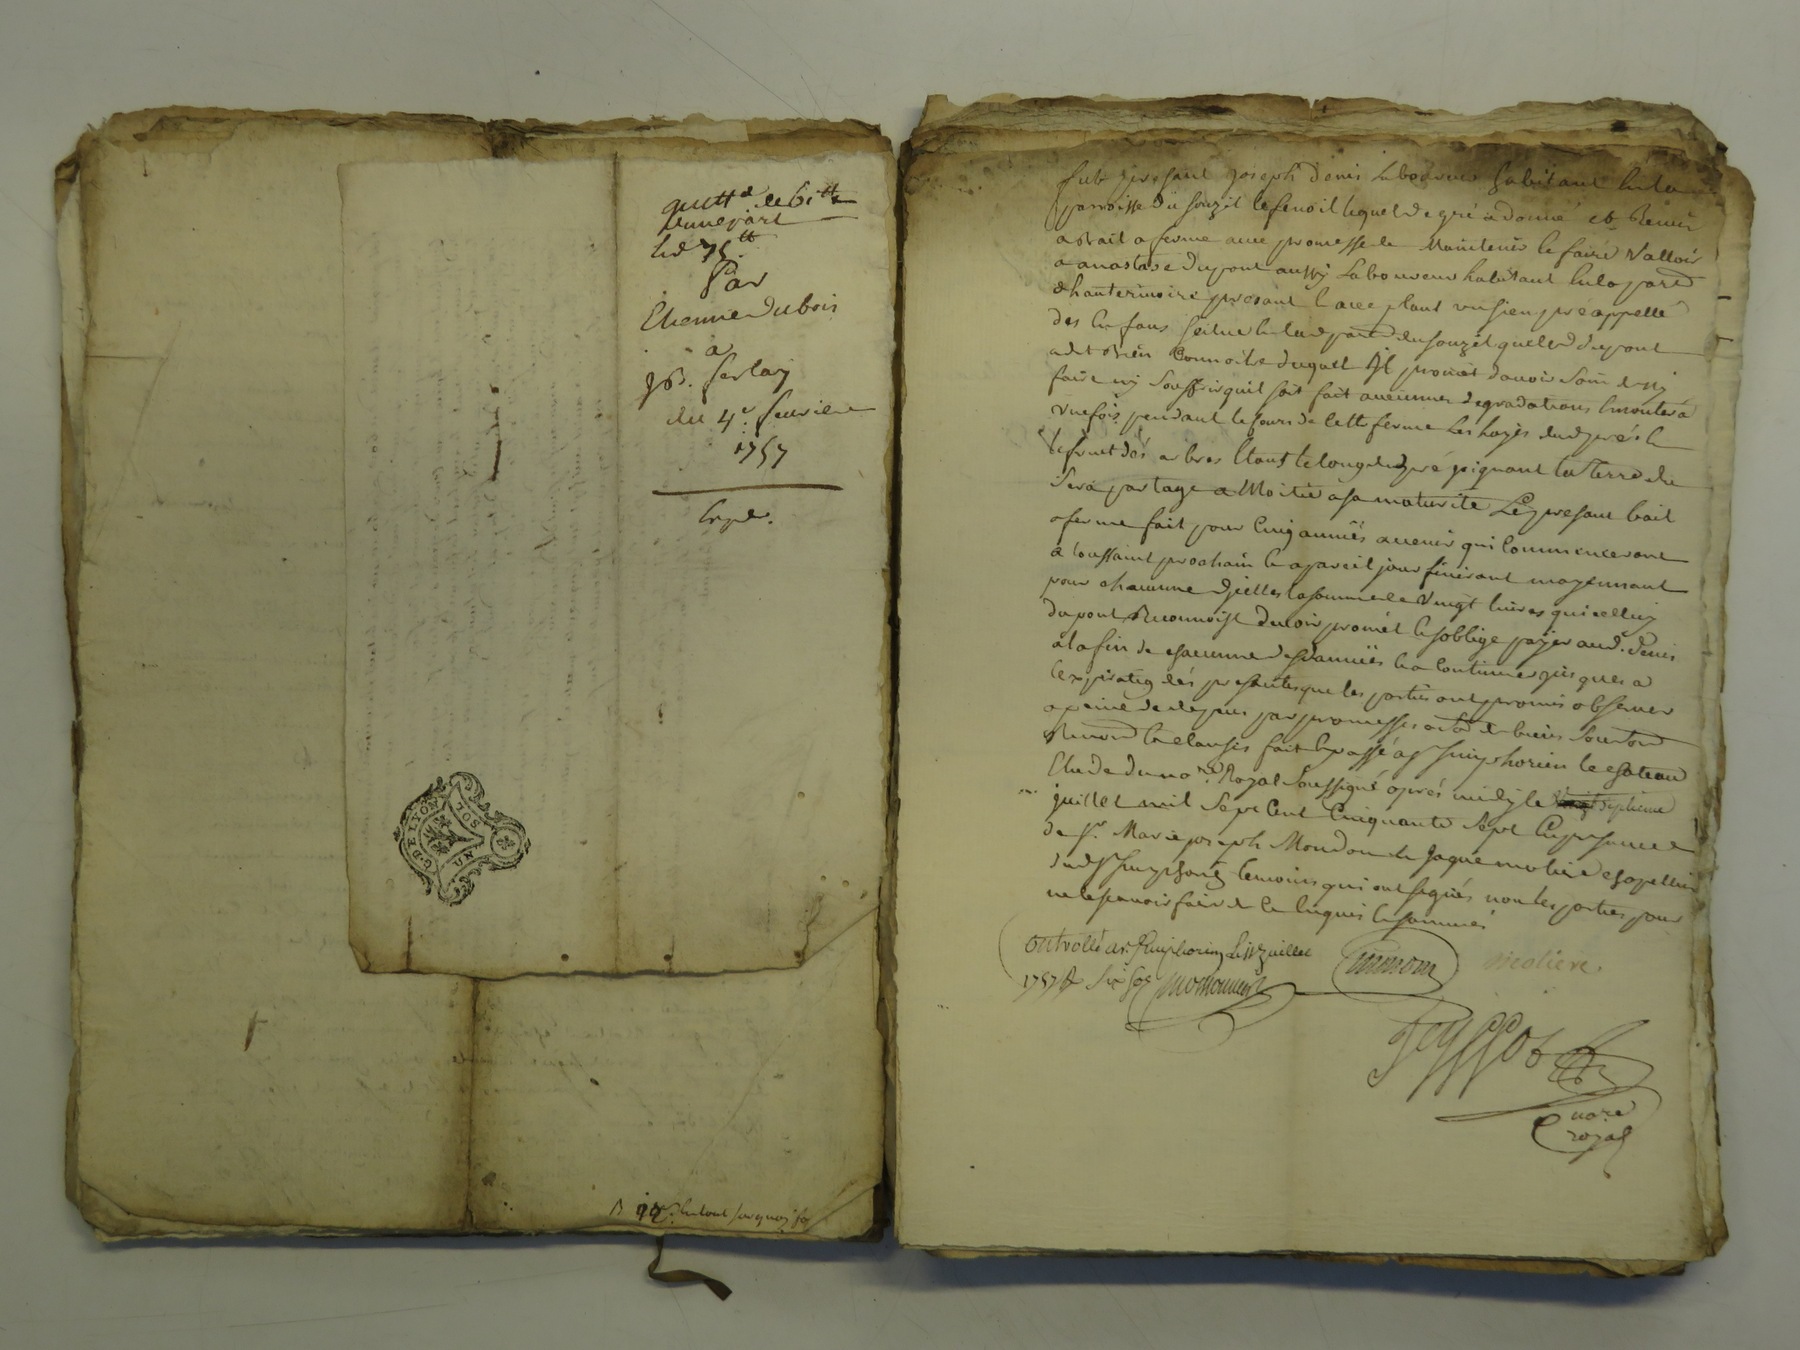 quitt.ce de 61tt
d'une part
et de 75tt
Par
Etienne dubois
a
JB. 
du 4e. feuvrier
1757
Exped.
G. DE LYON
UN SOL
fut presant joseph denis Laboureur habitant en la
parroisse du souzit le fenoil lequel de gré a donné et Remis
a trait a ferme avec promesse de Maintenir et faire Valloir
a anastase dupont aussy Laboureur habitant en la paroe
d'hauterivoire presant et acceptant un sien pré appellé
des En fans scitué en lad. paroe du souzit quelled dupont
a dit bien Connoitre duquel Il promet davoir soin de ny
faire ny Souffrir qu'il soit fait aucunnes degradations 
une fois pendant le Cours de Cette ferme les hayes dud pré et
le fruit dés arbres Etans le long dud pré joignant la Terre du
Sera partagé a Moitié a sa maturité Le presant bail
a ferme fait pour Cinq années a venir qui Commenceront
a toussaint prochain et a pareil jour finiront moyennant
pour chacunne d'jcelles la somme de Vingt livres qu'icelluy
dupont Reconnoist devoir promet et soblige payer aud. denis
a la fin de chacunne desd années et a Continuer jusques a
lexpiraõn dés presantes que les parties ont promis observer
a peine de depens par promesses 
 et clauses fait et passé a St simphorien le chateau
Etude du nore Royal soussigné après midy le septieme
juillet mil Sept Cent Cinquante Sept En presance
de Sr. Marie joseph Moudon et jaque moliere chapellier
dud St simphorien temoins qui ont signés non les parties pour
ne le scavoir faire de ce enquis et sommés
Controllé a St. simphorien le juillet
1757 R six sols
moliere.
nore
royal